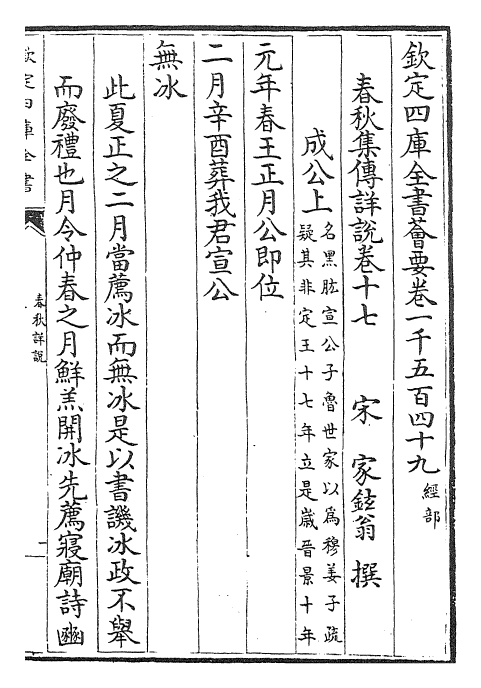 欽定四庫全書薈要卷一千五百四十九 經部
春秋集傳詳說卷十七 宋 家鉉翁 撰
成公上 名黑肱宣公子魯世家以為穆姜子疏
疑其非定王十七年立是歲晉景十年
元年春王正月公即位
二月辛酉葬我君宣公
無冰
此夏正之二月當薦冰而無冰是以書譏冰政不舉
而廢禮也月令仲春之月鮮羔開冰先薦寢廟詩豳
欽定四庫全書
春秋詳說
一